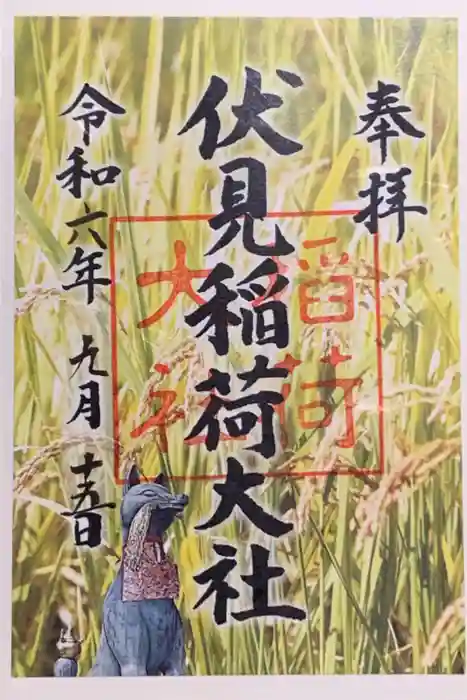 奉拝
伏見稲荷大社
稲荷
大社
令和六年 九月 十五日